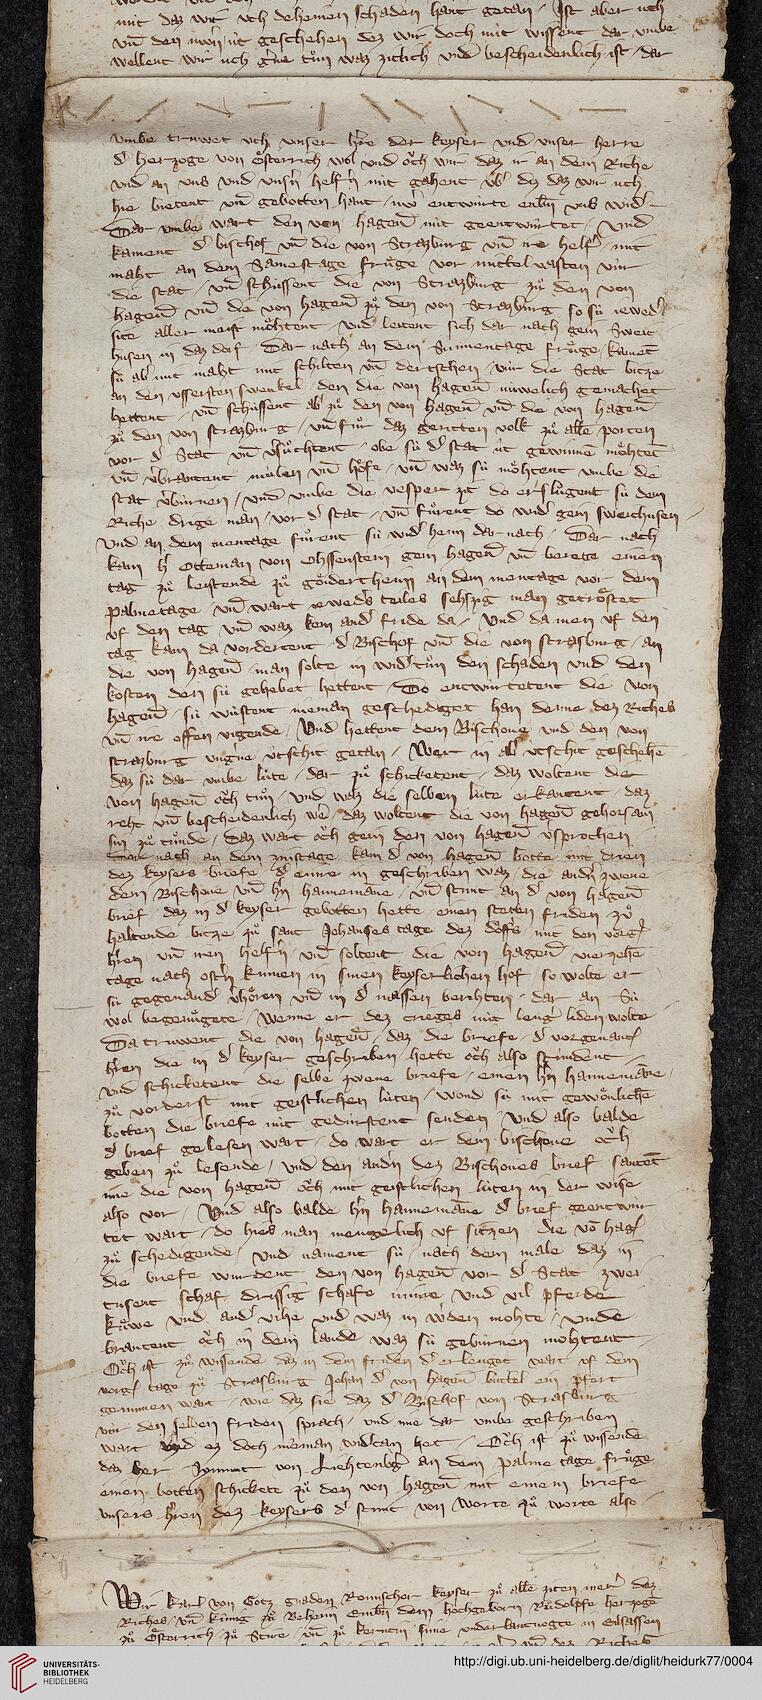 mit daz wir uch deheinen schaden hant getan / Ist aber uch
und den uwern út geschehen dez wir doch nút wissent dar umbe
wellent wir uch gerne tůn waz zitlich und bescheidenlich ist / dar
umbe truwet uch unser herre der keyser und unser herre
der herzoge von Österrich wol und öch wir daz ir an dem Riche
und an uns und unsern helfern mit gahent uber daz daz wir uch
hie bietent und gebotten hant /
Dar umbe wart den von hagen nút geentwürtet / Und
kament der bischof und die von Strazburg und ire helfer mit
maht an dem Samestage frůge vor mittelvasten
die stat / und schussent die von Strazburg zů den von
hagen und die von hagen zů den von Strazburg so sú ieweder
site aller meist möhtent / und leitent sich dar nach gein Sweic
husen in daz dorf / Dar nach an dem Sunnentage frůge kament
sú aber mit maht mit schilten und für die Stat bitze
an den ussersten / den die von hagen nuwelich gemachet
hettent / und schussent aber zů den von hagen und die von hagen
zů den von strazburg / und fůr daz geritten volk zů allen porten
vor der Stat und versůchtent / obe sú der stat út gewinnen möhtent
und verbrantent mulen und höfe / und waz sú möhtent umbe die
stat verburnen / und umbe die vesper zit do erslůgent sú dem
Riche drige man / vor der stat / und fůrent do wider gein sweichusen /
Und an dem mentage fůrent sú wider heim dar nach / Dar nach
kam her Otteman von Ohssenstein gein hagen und berete einen
tag zů leistende zů an dem mentage vor dem
palmetage / und wart ieweders teiles sehszig man getröstet
uf den tag und waz kein ander fride da / Und da men uf den
tag kam da vordertent der Bischof und die von strasburg / an
die von hagen / man solte in widertůn den schaden und den
kosten den sú gehebet hettent / Do entwurtetent die von
hagen / sú wustent nieman geschediget han denne dez Riches
und ire offen vigende / Und hettent dem Bischove und den von
strazburg ungerne utschit getan / Wer in aber utschit geschehen
daz sú dar umbe lúte / dar zů schicketent / daz woltent die
von hagen öch tůn / und waz die selben lúte erkantent / daz
reht und bescheidenlich wer / daz woltent die von hagen gehorsam
sin zů tůnde / Daz wart öch gein den von hagen versprochen
Dar nach an dem zinstage kam der von hagen botte mit drien
dez keysers briefe / der eine in geschriben waz / die andern zwene
dem Bischove und hern hannemanne / und stunt an der von hagen
brief / daz in der keyser gebotten hette einen steten friden zů
haltende bitze zů sant Johanses tage dez döffers mit den vorgen
herren und iren helfern / und soltent die von hagen vierzehen
tage nach ostern kumen in sinen keyserlichen hof / so wolte er
sú gegenander verhören und in der massen berihten / dar an Sú
wol begenůgete / Wenne er dez crieges nút lenger liden wolte
Da truwent die von hagen / daz die briefe / der vorgenanten
herren die in der keyser geschriben hette öch also stundent /
und schicketent die selbe zwene briefe / einen hern hannemanne /
zů vorderst mit geistlichen lúten / wond sú mit gewönlichen
botten die briefe nút gedurstent senden / Und also balde
der brief gelesen wart / do wart er dem bischove öch
geben zů lesende / und den andern dez Bischoves brief santent
ime die von hagen öch mit geistlichen lúten in der wise
also vor / Und also balde hern hannemanne der brief geentwur
tet wart / do hies man mengelich uf sitzen die von hagen
zů schedigende / und nament sú nach dem male daz in
die briefe wurdent den von hagen vor der Stat zwei
tusent schaf drissig schafe minre und vil pferde
kůwe und ander vihe und waz in werden mohte / Unde
brantent öch in dem lande waz sú geburnen mohtent
Öch ist zů wissende daz in dem friden der erlenget wart uf dem
vorgen tage zů Strasburg Johan der von hagen búttel ein pfert
genummen wart / wie daz sie daz der Bischof von Strasburg
vúr den selben friden sprach / und ime dar umbe geschriben
wart und ez doch nieman widertan het / Öch ist zů wissende
daz her Symunt von Liehtenberg an dem palme tage frůge
einen botten schickete zů den von hagen mit einem briefe
unsers herren dez keysers der stunt von worte zů worte also
Wir Karl von Gotz gnaden Romischer keyser zů allen ziten merer dez
Riches / und kúnig zů Beheim Embieten dem hochgebornen Růdolfe herzogen
zů Österrich zů Stire / und zů kernten sime underlantvogte in Eilsassen
UNIVERSITÄTS-
BIBLIOTHEK
HEIDELBERG
http://digi.ub.uni-heidelberg.de/diglit/heidurk77/0004